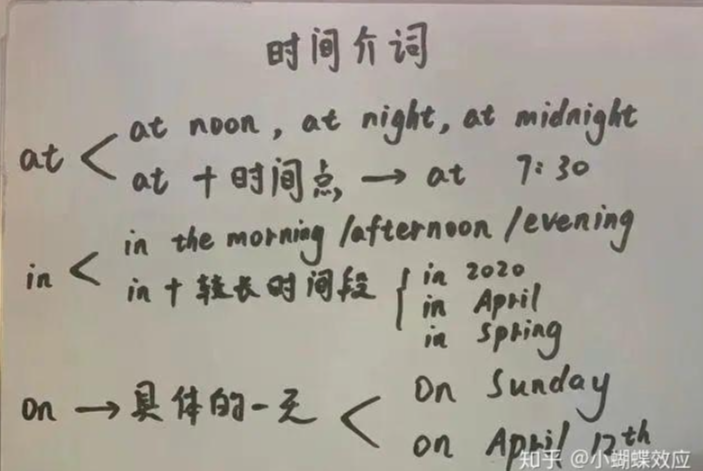 时间介词
at < at noon, at night, at midnight
at + 时间点 → at 7:30
in < in the morning /afternoon /evening
in + 较长时间段 { in 2020
in April
in spring
on → 具体的一天 < On Sunday
on April 12th
知乎 @小蝴蝶效应